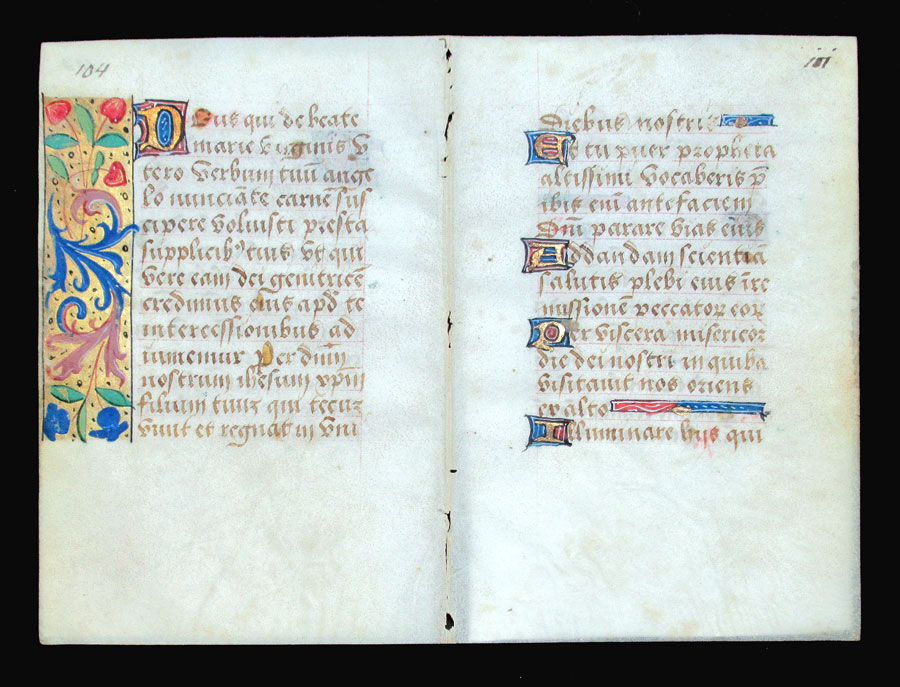 104
Deus qui de beate
marie v̄ginis v
tero verbum tuū ange
lo nunciāte carnē sus
cipere voluisti presta
supplicibꝰ tuis vt qui
vere eam dei genitricē
credimus eius apd te
intercessionibus ad
iuuemur Per dn̄m
nostrum ihesum xp̄m
filium tuuꝫ qui tecuꝫ
viuit et regnat in vni
Diebus nostris
Et tu puer propheta
altissimi vocaberis p̄
ibis enī ante faciem
Dn̄i parare vias eius
Ad dandam scientiā
salutis plebi eius ī re
missionē peccatoꝝ eoꝝ
Per viscera misericor
die dei nostri in quibꝰ
visitauit nos oriens
ex alto
Illuminare hijs qui